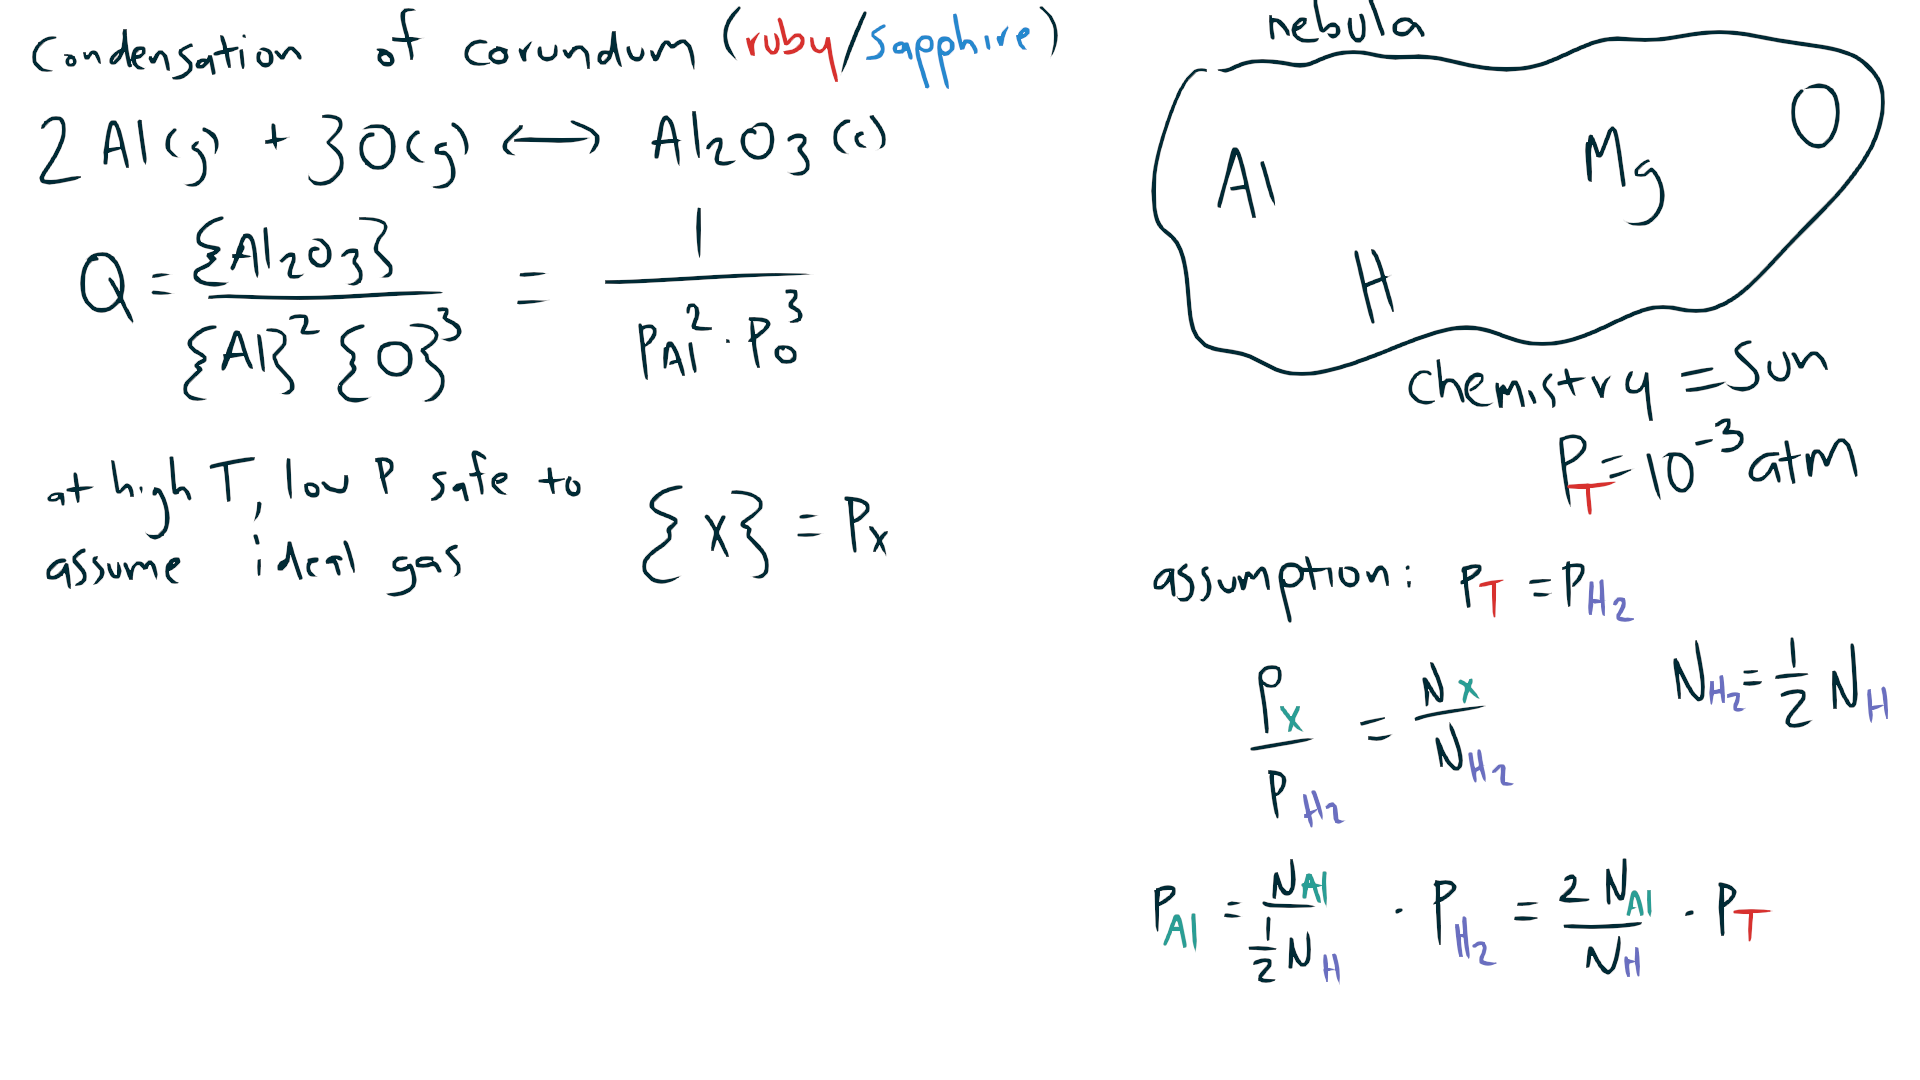 Condensation of corundum (ruby/sapphire)
2 Al(g) + 3O(g) ⟷ Al₂O₃(c)
Q = {Al₂O₃} / {Al}² {O}³ = 1 / P_Al² · P_O³
at high T, low P safe to
assume ideal gas
{x} = Pₓ
nebula
Al Mg O
H
chemistry = Sun
P_T = 10⁻³ atm
assumption: P_T = P_H₂
P_X / P_H₂ = N_X / N_H₂
N_H₂ = 1/2 N_H
P_Al = N_Al / 1/2 N_H · P_H₂ = 2 N_Al / N_H · P_T